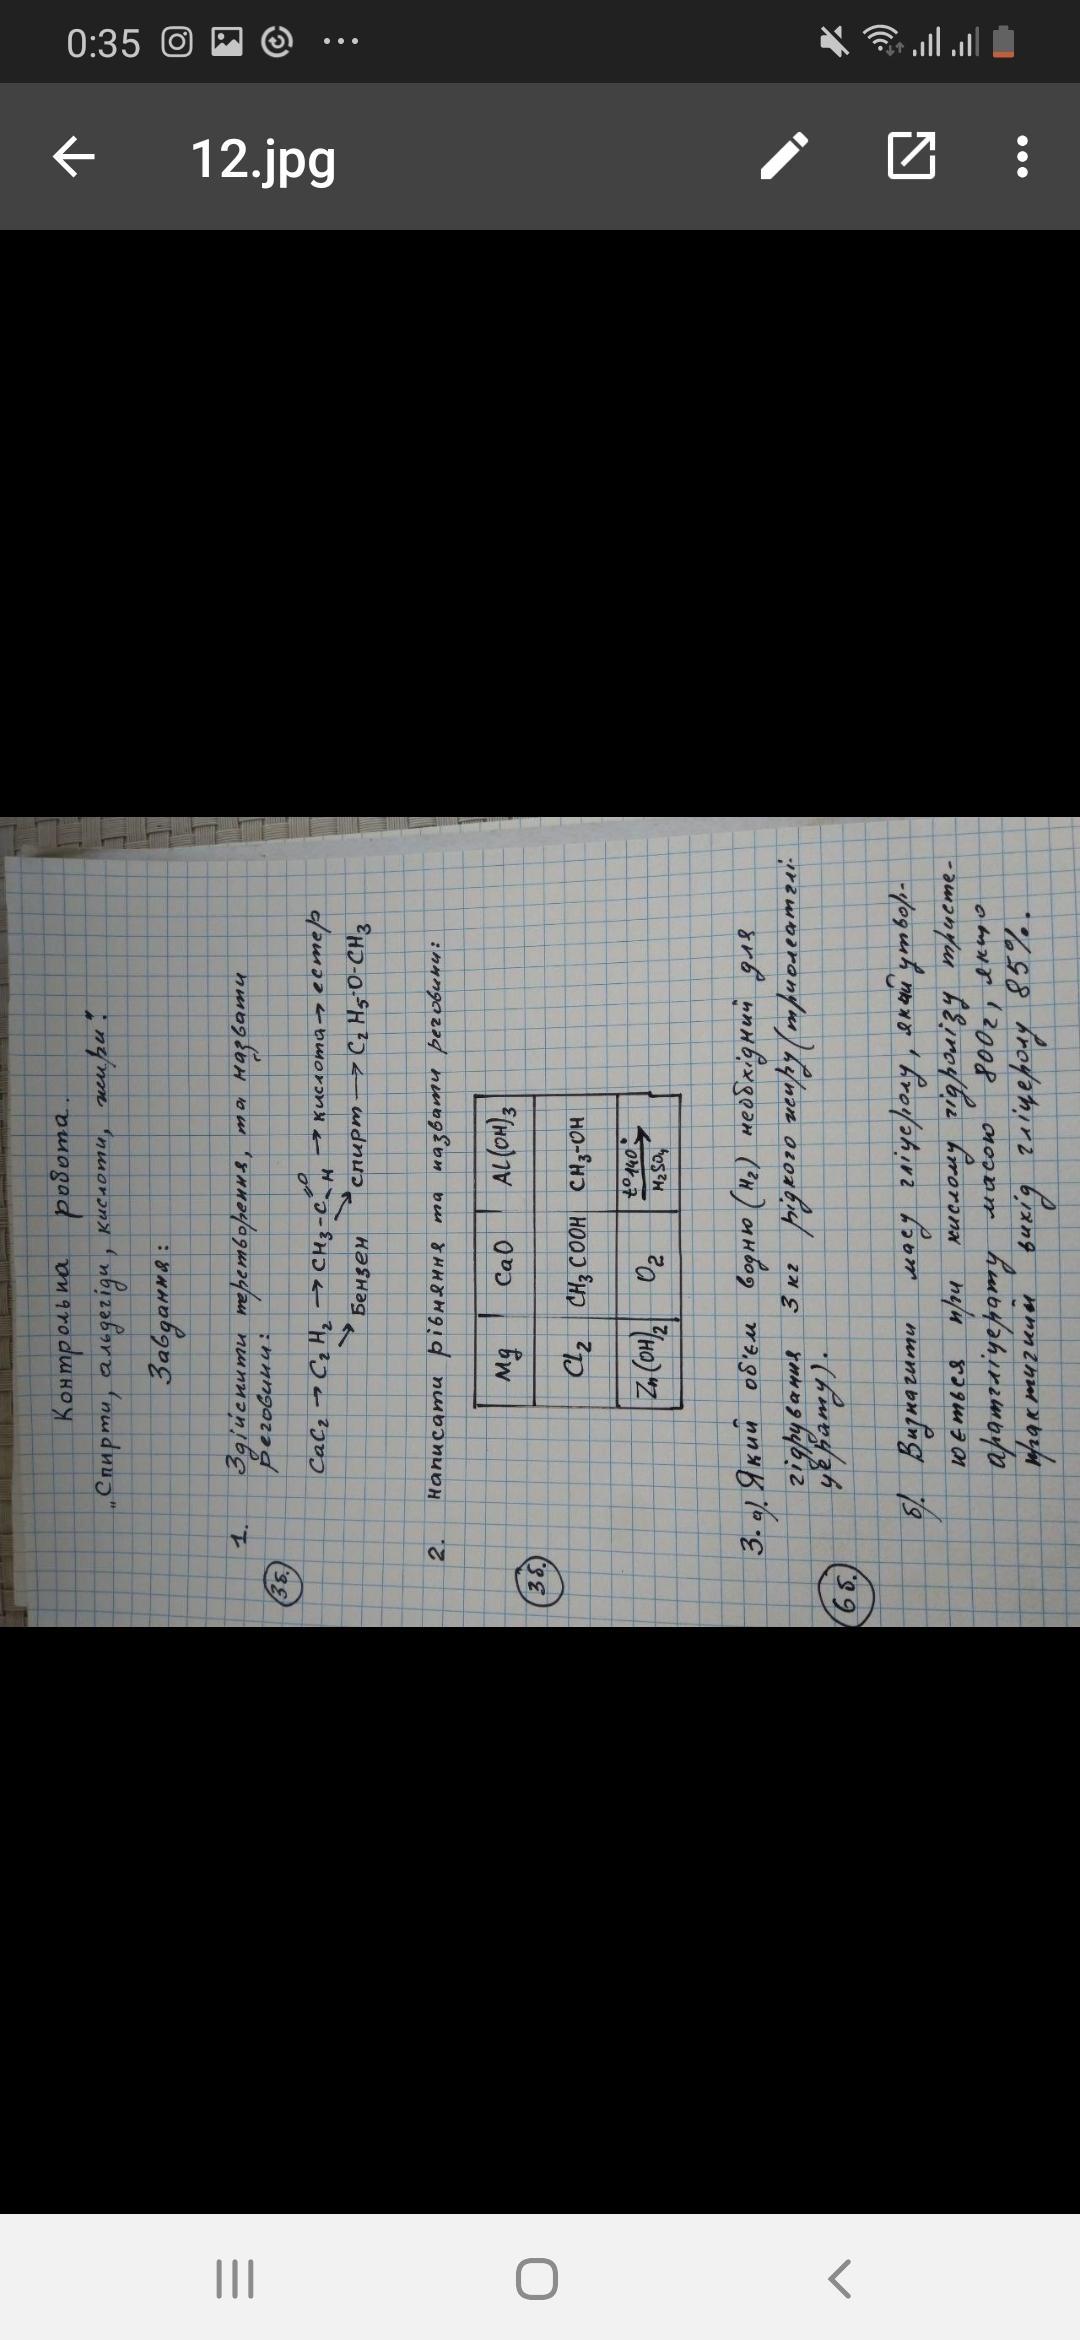 0:35
12.jpg
Контрольна робота.
„Спирти, альдегіди, кислоти, жири."
Завдання:
1. Здійснити перетворення, та назвати
речовини:
3б.
CaC₂ → C₂H₂ → CH₃-C=O-H → кислота → естер
→ Бензен → спирт → C₂H₅-O-CH₃
2. написати рівняння та назвати речовини:
3б.
Mg CaO Al(OH)₃
Cl₂ CH₃COOH CH₃-OH
Zn(OH)₂ O₂ t°140° H₂SO₄ →
3. а). Який об'єм водню (H₂) необхідний для
гідрування 3 кг рідкого жиру (триолеатглі-
церату).
6б.
б). Визначити масу гліцеролу, який утвор-
юється при кислому гідролізу тристе-
аратгліцерату масою 800г, якщо
практичний вихід гліцеролу 85%.